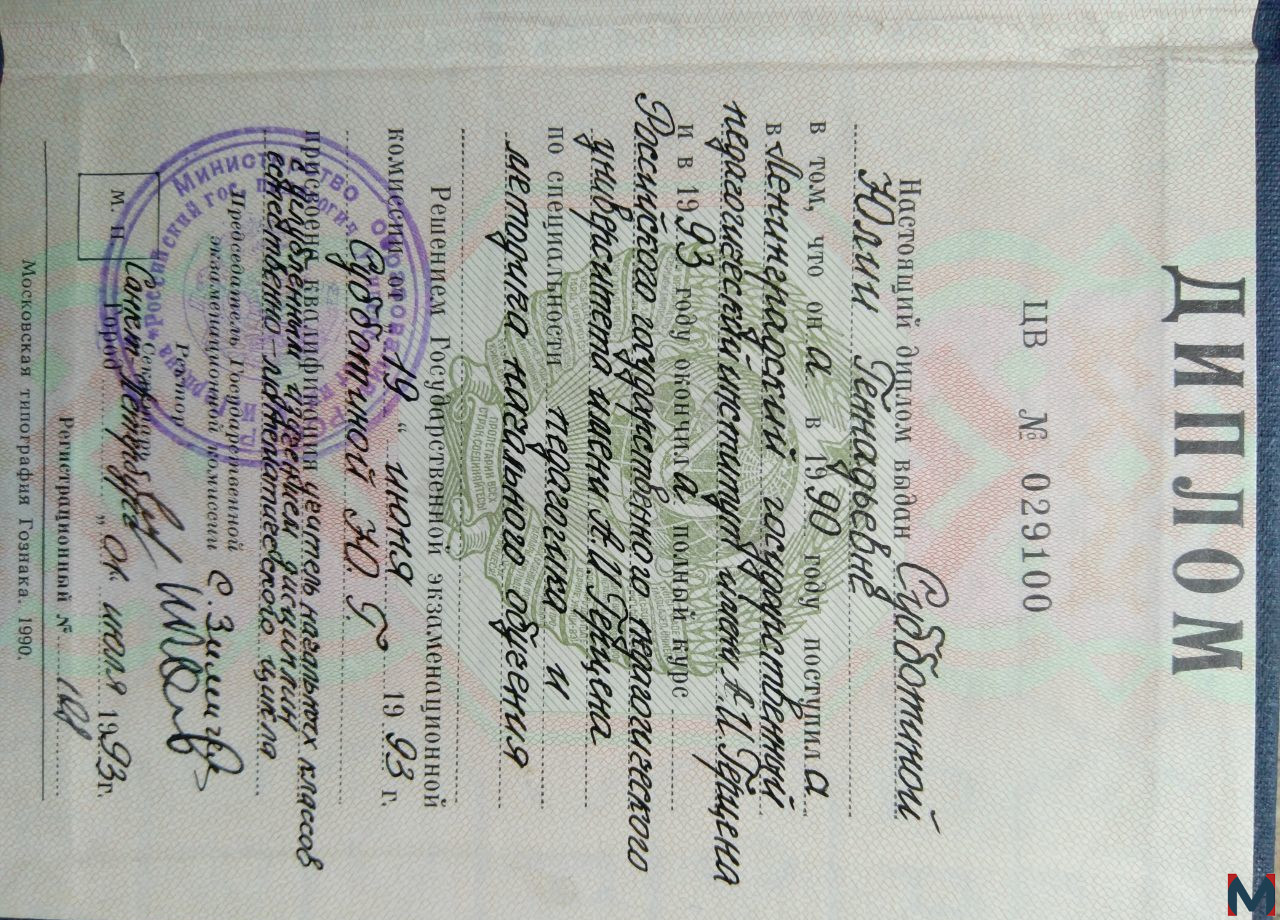 ДИПЛОМ
ЦВ № 029100
Настоящий диплом выдан Субботиной
Юлии Геннадьевне
в том, что он а в 1990 году поступила
в Ленинградский государственный
педагогический институт имени А.И. Герцена
и в 1993 году окончила полный курс
Российского государственного педагогического
университета имени А.И. Герцена
по специальности педагогика и
методика начального обучения
Решением Государственной экзаменационной
комиссии от „19“ июня 1993 г.
Субботиной Ю. Г.
присвоена квалификация учитель начальных классов
с углубленным изучением дисциплин
естественно-математического цикла
Председатель Государственной
экзаменационной комиссии
Ректор
Секретарь
М. П.
Город Санкт-Петербург „ 01. июля 1993г.
Регистрационный №
Московская типография Гознака. 1990.
ПРОЛЕТАРИИ ВСЕХ
СТРАН, СОЕДИНЯЙТЕСЬ!
М